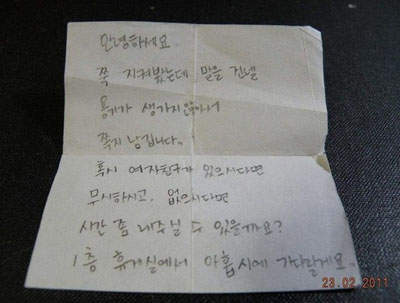 안녕하세요.
쭉 지켜봤는데 말을 건넬
용기가 생기지않아서
쪽지 남깁니다.
혹시 여자친구가 있으시다면
무시하시고, 없으시다면
시간 좀 내주실 수 있을까요?
1층 휴게실에서 아홉시에 기다릴게요.
28.02.2011